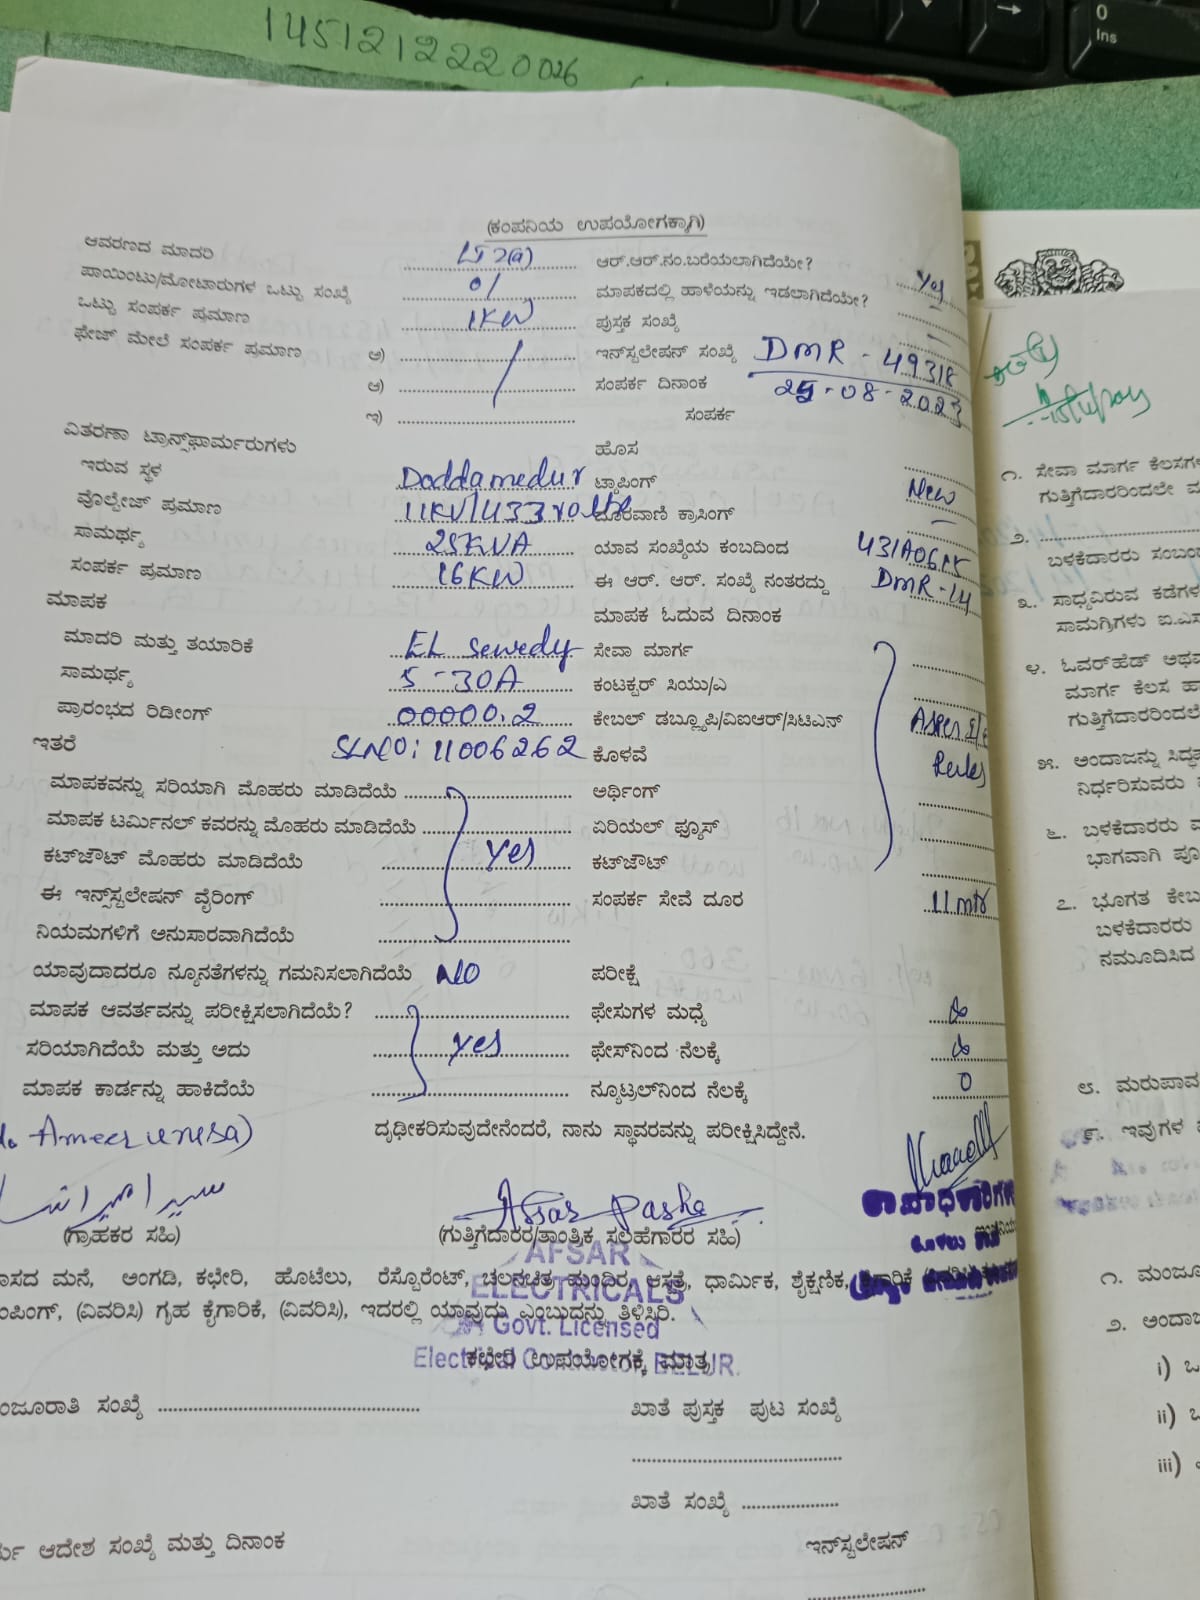 1451212220026
0
Ins
(ಕಂಪನಿಯ ಉಪಯೋಗಕ್ಕಾಗಿ)
ಆವರಣದ ಮಾದರಿ LT 2(a) ಆರ್.ಆರ್.ನಂ.ಬರೆಯಲಾಗಿದೆಯೇ? Yes
ಪಾಯಿಂಟು/ಮೋಟಾರುಗಳ ಒಟ್ಟು ಸಂಖ್ಯೆ 01 ಮಾಪಕದಲ್ಲಿ ಹಾಳೆಯನ್ನು ಇಡಲಾಗಿದೆಯೇ? —
ಒಟ್ಟು ಸಂಪರ್ಕ ಪ್ರಮಾಣ 1KW ಪುಸ್ತಕ ಸಂಖ್ಯೆ —
ಫೇಜ್ ಮೇಲೆ ಸಂಪರ್ಕ ಪ್ರಮಾಣ ಅ) ಇನ್‌ಸ್ಟಲೇಷನ್ ಸಂಖ್ಯೆ DMR - 49318
ಆ) ಸಂಪರ್ಕ ದಿನಾಂಕ 25-08-2023
ಇ) ಸಂಪರ್ಕ
ವಿತರಣಾ ಟ್ರಾನ್ಸ್‌ಫಾರ್ಮರುಗಳು ಹೊಸ
ಇರುವ ಸ್ಥಳ Doddamedur ಟ್ಯಾಪಿಂಗ್ New
ವೊಲ್ಟೇಜ್ ಪ್ರಮಾಣ 11KV/433 volts ದೂರವಾಣಿ ಕ್ರಾಸಿಂಗ್ —
ಸಾಮರ್ಥ್ಯ 25KVA ಯಾವ ಸಂಖ್ಯೆಯ ಕಂಬದಿಂದ
ಸಂಪರ್ಕ ಪ್ರಮಾಣ 16KW ಈ ಆರ್. ಆರ್. ಸಂಖ್ಯೆ ನಂತರದ್ದು DMR-14
ಮಾಪಕ ಮಾಪಕ ಓದುವ ದಿನಾಂಕ
ಮಾದರಿ ಮತ್ತು ತಯಾರಿಕೆ EL sewedy ಸೇವಾ ಮಾರ್ಗ
ಸಾಮರ್ಥ್ಯ 5-30A ಕಂಟಕ್ಟರ್ ಸಿಯು/ಎ
ಪ್ರಾರಂಭದ ರಿಡೀಂಗ್ 00000.2 ಕೇಬಲ್ ಡಬ್ಲ್ಯೂಪಿ/ವಿಐಆರ್/ಸಿಟಿಎಸ್ Asper
ಇತರೆ SLNO: 11006262 ಕೊಳವೆ Rules
ಮಾಪಕವನ್ನು ಸರಿಯಾಗಿ ಮೊಹರು ಮಾಡಿದೆಯೆ ಅರ್ಥಿಂಗ್
ಮಾಪಕ ಟರ್ಮಿನಲ್ ಕವರನ್ನು ಮೊಹರು ಮಾಡಿದೆಯೆ ಏರಿಯಲ್ ಫ್ಯೂಸ್
ಕಟ್‌ಔಟ್ ಮೊಹರು ಮಾಡಿದೆಯೆ yes ಕಟ್‌ಔಟ್
ಈ ಇನ್ಸ್‌ಸ್ಟಲೇಷನ್ ವೈರಿಂಗ್ ಸಂಪರ್ಕ ಸೇವೆ ದೂರ 11mtr
ನಿಯಮಗಳಿಗೆ ಅನುಸಾರವಾಗಿದೆಯೆ
ಯಾವುದಾದರೂ ನ್ಯೂನತೆಗಳನ್ನು ಗಮನಿಸಲಾಗಿದೆಯೆ NO ಪರೀಕ್ಷೆ
ಮಾಪಕ ಆವರ್ತವನ್ನು ಪರೀಕ್ಷಿಸಲಾಗಿದೆಯೆ? ಫೇಸುಗಳ ಮಧ್ಯೆ
ಸರಿಯಾಗಿದೆಯೆ ಮತ್ತು ಅದು yes ಫೇಸ್‌ನಿಂದ ನೆಲಕ್ಕೆ
ಮಾಪಕ ಕಾರ್ಡನ್ನು ಹಾಕಿದೆಯೆ ನ್ಯೂಟ್ರಲ್‌ನಿಂದ ನೆಲಕ್ಕೆ 0
Ameerunnisa) ದೃಢೀಕರಿಸುವುದೇನೆಂದರೆ, ನಾನು ಸ್ಥಾವರವನ್ನು ಪರೀಕ್ಷಿಸಿದ್ದೇನೆ.
Afsar pasha
(ಗ್ರಾಹಕರ ಸಹಿ) (ಗುತ್ತಿಗೆದಾರರ/ತಾಂತ್ರಿಕ ಸಲಹೆಗಾರರ ಸಹಿ)
AFSAR
ELECTRICALS
Govt. Licensed
Electrical Contractor, BELUR.
ಾಸದ ಮನೆ, ಅಂಗಡಿ, ಕಛೇರಿ, ಹೊಟೆಲು, ರೆಸ್ಟೋರೆಂಟ್, ಚಲನಚಿತ್ರ ಮಂದಿರ, ಆಸ್ಪತ್ರೆ, ಧಾರ್ಮಿಕ, ಶೈಕ್ಷಣಿಕ,
ಂಪಿಂಗ್, (ವಿವರಿಸಿ) ಗೃಹ ಕೈಗಾರಿಕೆ, (ವಿವರಿಸಿ), ಇದರಲ್ಲಿ ಯಾವುದು ಎಂಬುದನ್ನು ತಿಳಿಸಿರಿ.
ಕಛೇರಿ ಉಪಯೋಗಕ್ಕೆ ಮಾತ್ರ
ಂಜೂರಾತಿ ಸಂಖ್ಯೆ ಖಾತೆ ಪುಸ್ತಕ ಪುಟ ಸಂಖ್ಯೆ
ಖಾತೆ ಸಂಖ್ಯೆ
ಆದೇಶ ಸಂಖ್ಯೆ ಮತ್ತು ದಿನಾಂಕ ಇನ್‌ಸ್ಟಲೇಷನ್
೧. ಸೇವಾ ಮಾರ್ಗ ಕೆಲಸಗಳ
ಗುತ್ತಿಗೆದಾರರಿಂದಲೇ
೨.
ಬಳಕೆದಾರರು
೩. ಸಾಧ್ಯವಿರುವ ಕಡೆಗಳ
ಸಾಮಗ್ರಿಗಳು ಐ.ಎಸ್
೪. ಓವರ್‌ಹೆಡ್ ಅಥವ
ಮಾರ್ಗ ಕೆಲಸ
ಗುತ್ತಿಗೆದಾರರಿಂದಲೆ
೫. ಅಂದಾಜನ್ನು
ನಿರ್ಧರಿಸುವರು
೬. ಬಳಕೆದಾರರು
ಭಾಗವಾಗಿ
೭. ಭೂಗತ ಕೇಬ
ಬಳಕೆದಾರರು
ನಮೂದಿಸಿದ
೮. ಮರುಪಾವ
೯. ಇವುಗಳ
೧. ಮಂಜೂ
೨. ಅಂದಾಜ
i)
ii)
iii)